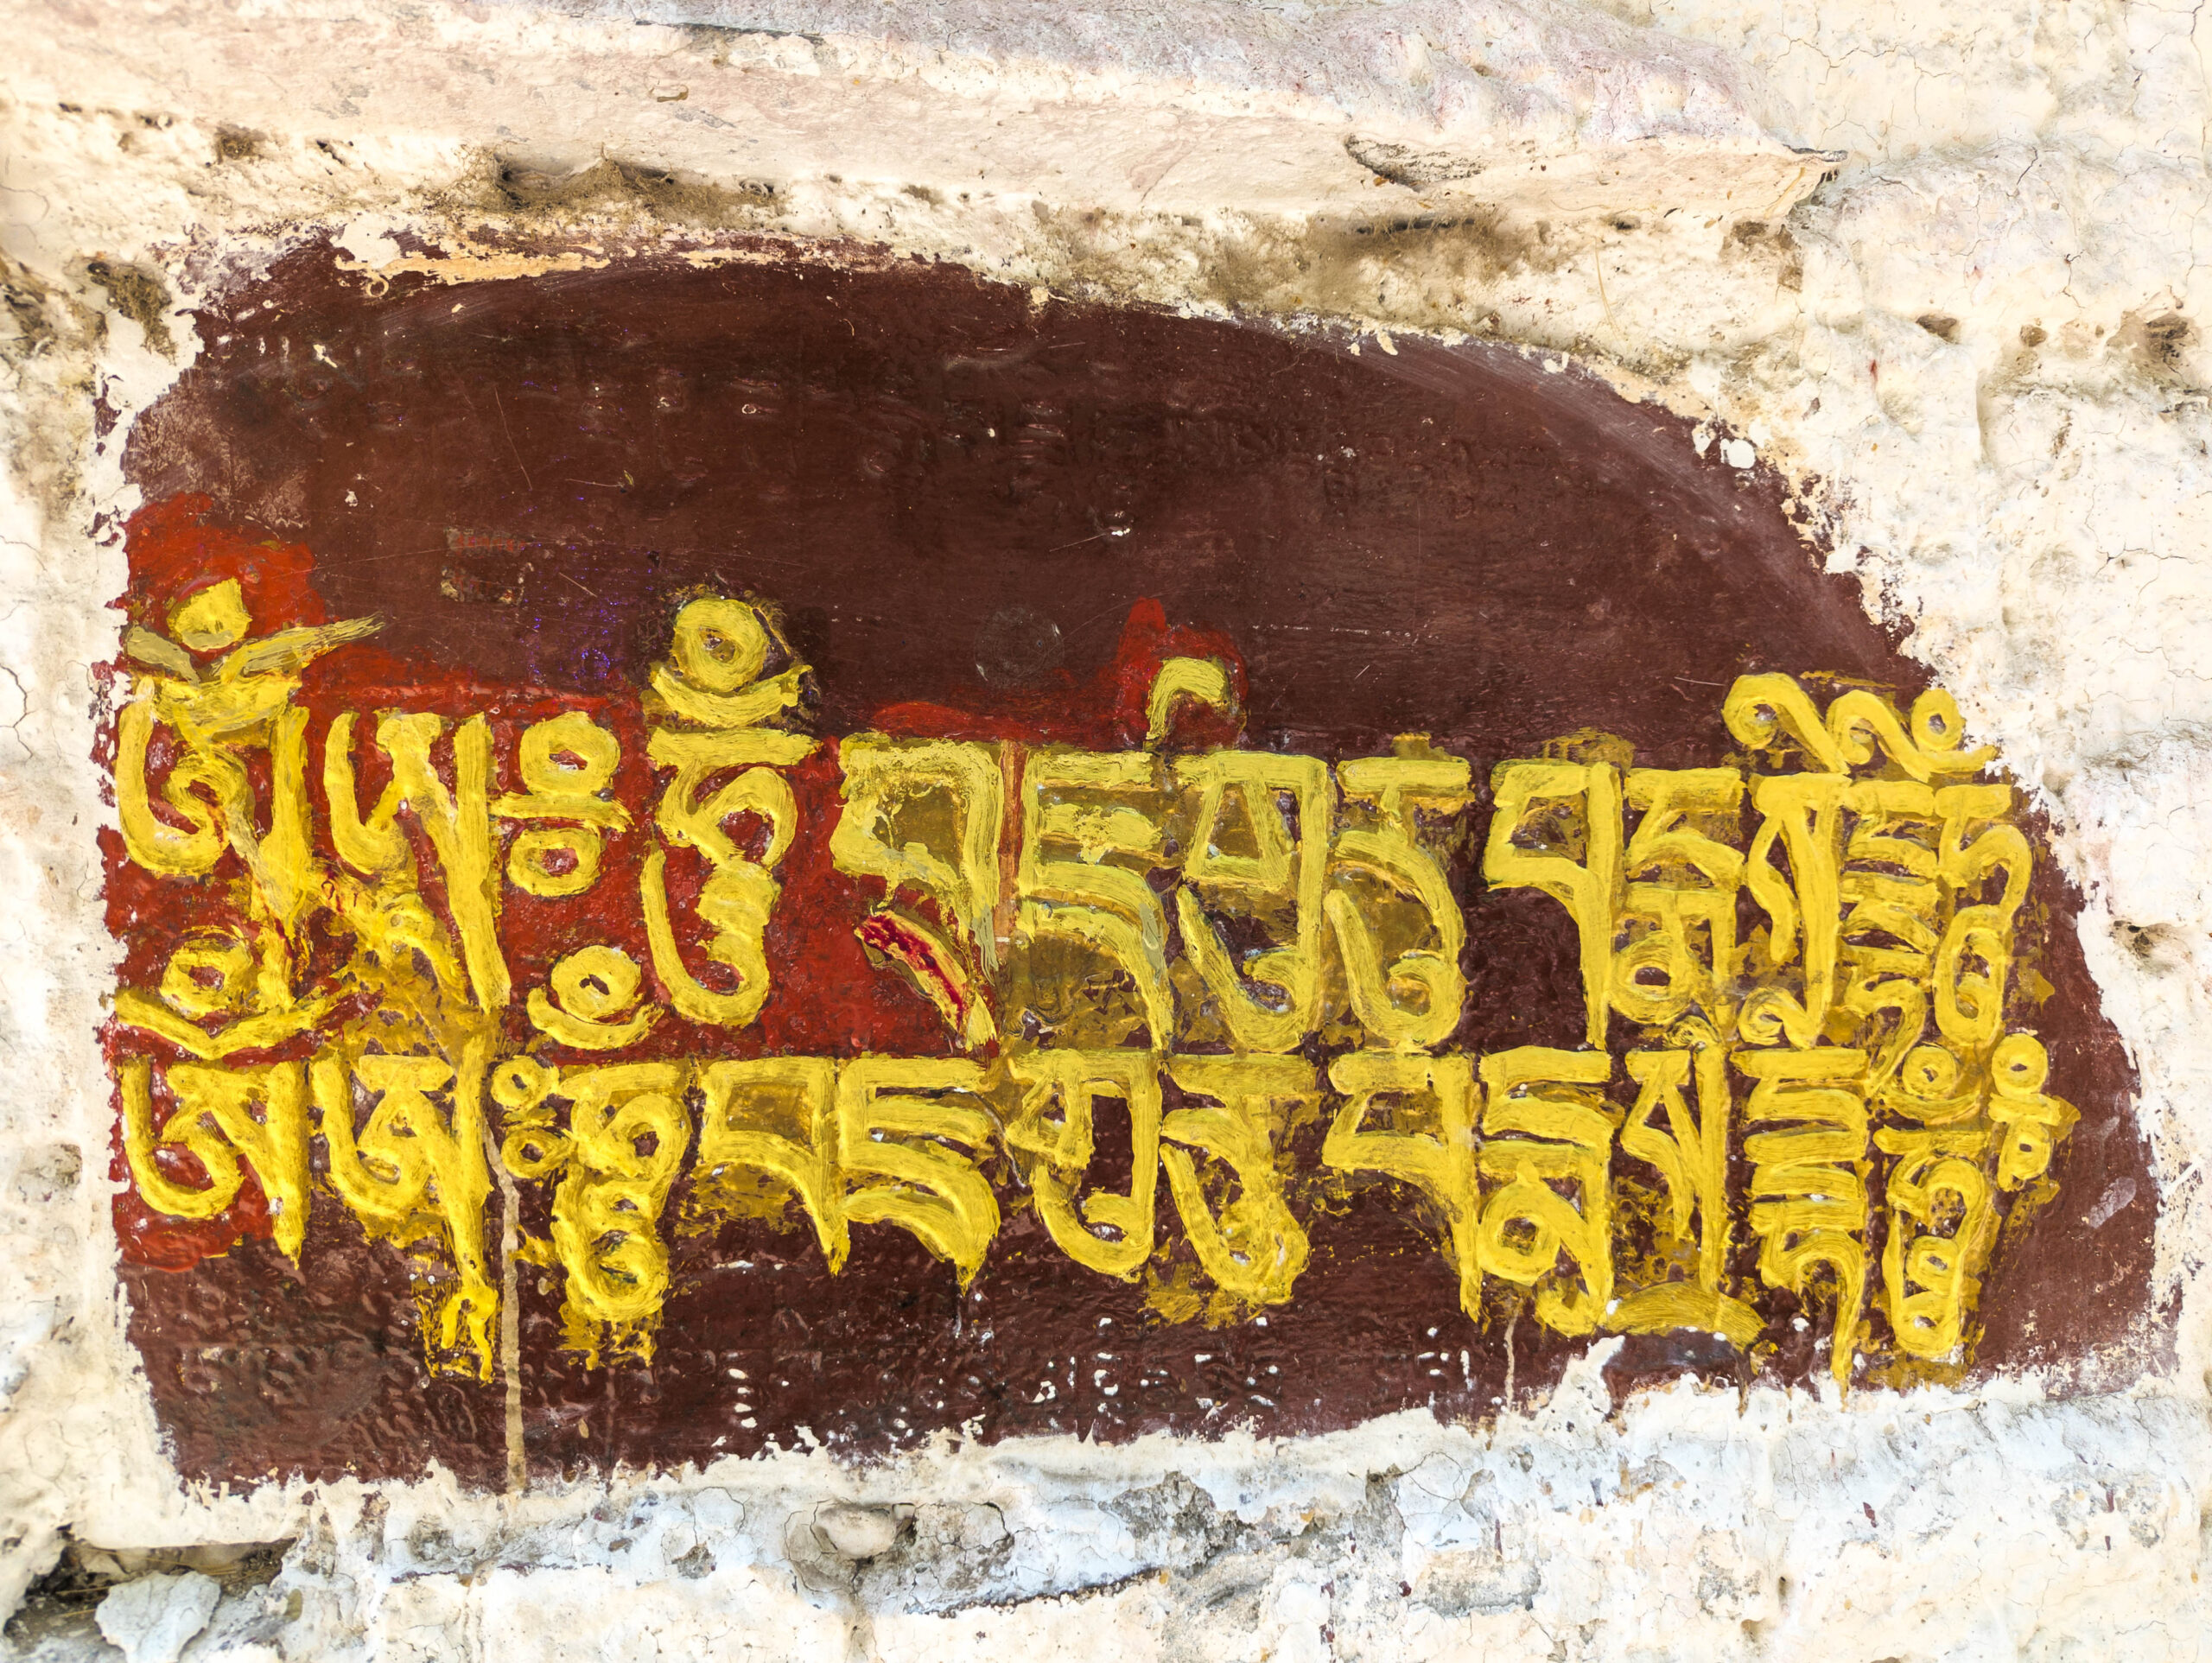 ཨོཾ་ཨཱཿཧཱུྃ་བཛྲ་གུ་རུ་པདྨ་སིདྡྷི་ཧཱུྃ
ཨོཾ་ཨཱཿཧཱུྃ་བཛྲ་གུ་རུ་པདྨ་སིདྡྷི་ཧཱུྃ༔